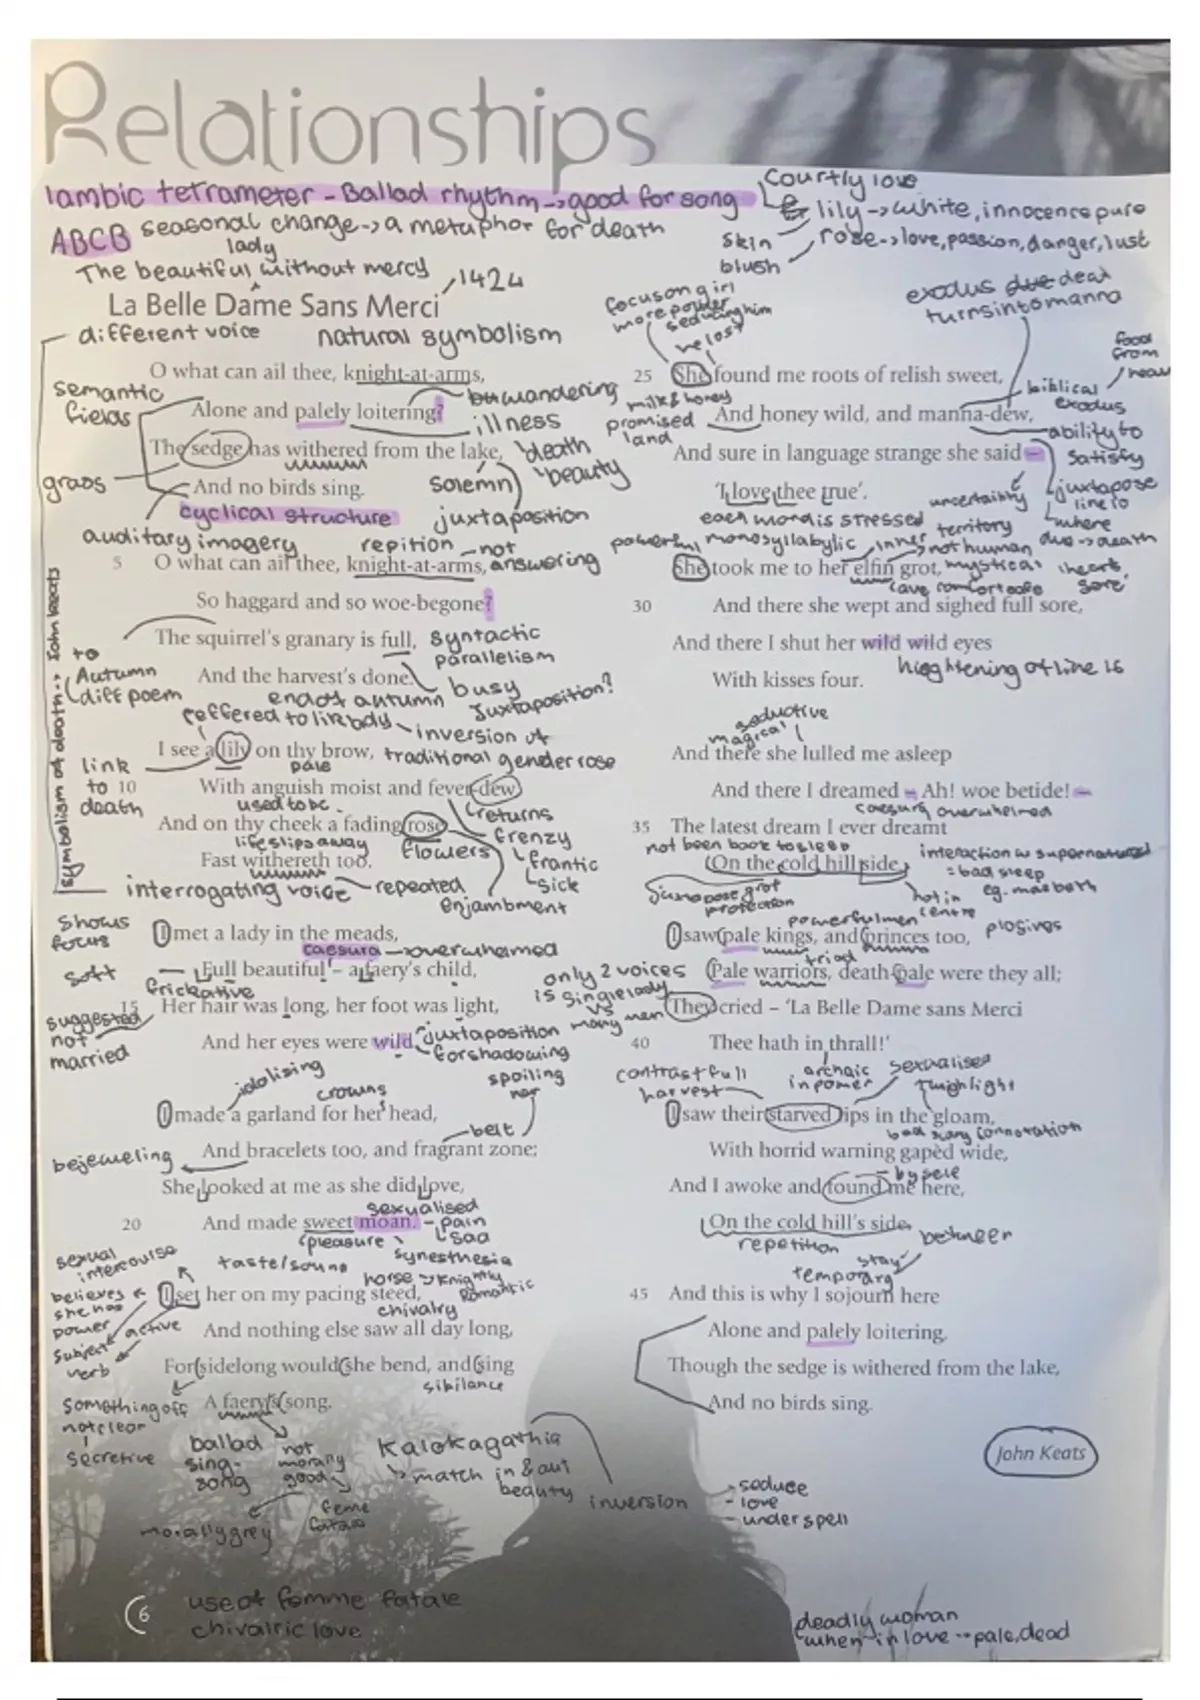 Relationships
Iambic tetrameter - Ballad rhythm -> good for song
Courtly love
lily -> white, innocence pure
ABCB seasonal change -> a metaphor for death
skin
rose -> love, passion, danger, lust
blush
lady
The beautiful without mercy
1424
La Belle Dame Sans Merci
different voice
natural symbolism
focus on girl
more power
seducing him
he lost
exodus due dew
turns into manna
O what can ail thee, knight-at-arms,
semantic
fields
wandering
Alone and palely loitering?
illness
The sedge has withered from the lake,
death
beauty
grass
And no birds sing.
solemn
cyclical structure
juxtaposition
auditory imagery
repition
not
answering
5 O what can ail thee, knight-at-arms,
So haggard and so woe-begone?
The squirrel's granary is full,
syntactic
parallelism
to
Autumn
diff poem
And the harvest's done.
end of autumn
busy
Juxtaposition?
reffered to lik body
inversion of
traditional gender rose
I see a lily on thy brow,
pale
link
to
death
symbolism of death -> John keats
10 With anguish moist and fever-dew,
used to be
returns
And on thy cheek a fading rose
life slips away
flowers
frenzy
frantic
sick
Fast withereth too.
interrogating voice
repeated
enjambment
shows
focus
I met a lady in the meads,
caesura -> overwhelmed
soft
Full beautiful – a faery's child,
frickative
15 Her hair was long, her foot was light,
suggested
not
married
And her eyes were wild.
juxtaposition
forshadowing
idolising
crowns
spoiling
her
I made a garland for her head,
belt
bejeweling
And bracelets too, and fragrant zone;
She looked at me as she did love,
sexualised
20 And made sweet moan.
pain
sad
pleasure
taste/sound
synesthesia
sexual
intercourse
horse -> knightly
Romantic
chivalry
believes
she has
power
I set her on my pacing steed,
subject
verb
active
And nothing else saw all day long,
For sidelong would she bend, and sing
sibilance
something off
not clear
secretive
A faery's song.
ballad
sing-
song
not
morally
good
morally grey
femme
fatale
Kalokagathia
match in & out
beauty
inversion
seduce
- love
- under spell
use of femme fatale
chivalric love
6
food
from
heaven
25 She found me roots of relish sweet,
milk & honey
promised
land
biblical
exodus
And honey wild, and manna-dew,
ability to
satisfy
And sure in language strange she said –
'I love thee true'.
uncertainty
juxtapose
line 10
where
due -> death
each word is stressed
powerful monosyllabylic
inner
territory
not human
mystical
She took me to her elfin grot,
cave comfortable
'heart
sore'
30 And there she wept and sighed full sore,
And there I shut her wild wild eyes
hieghtening of line 16
With kisses four.
seductive
magical
And there she lulled me asleep
And there I dreamed – Ah! woe betide! –
caesura overwhelmed
35 The latest dream I ever dreamt
not been back to sleep
On the cold hill side.
interaction w supernatural
= bad sleep
eg. macbeth
juxtapose grot
protection
not in
centre
powerful men
plosives
I saw pale kings, and princes too,
triad
Pale warriors, death-pale were they all;
only 2 voices
is single lady
vs
many men
They cried – 'La Belle Dame sans Merci
40 Thee hath in thrall!'
contrast full
harvest
archaic
in power
sexualised
twighlight
I saw their starved lips in the gloam,
bad scary connotation
With horrid warning gapèd wide,
by self
And I awoke and found me here,
On the cold hill's side.
repetition
between
stay
temporary
45 And this is why I sojourn here
Alone and palely loitering,
Though the sedge is withered from the lake,
And no birds sing.
John Keats
deadly woman
when in love -> pale, dead